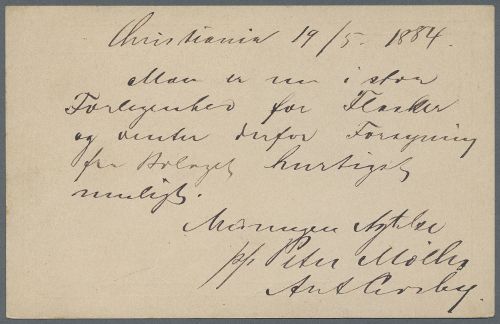 Christiania 19/5. 1884.
Man er nu i stor
Forlegenhed for Flasker
og venter derfor Forsyning
fra Bolaget hurtigst
muligt.
Agtelse
pp Peter Möller
Ant